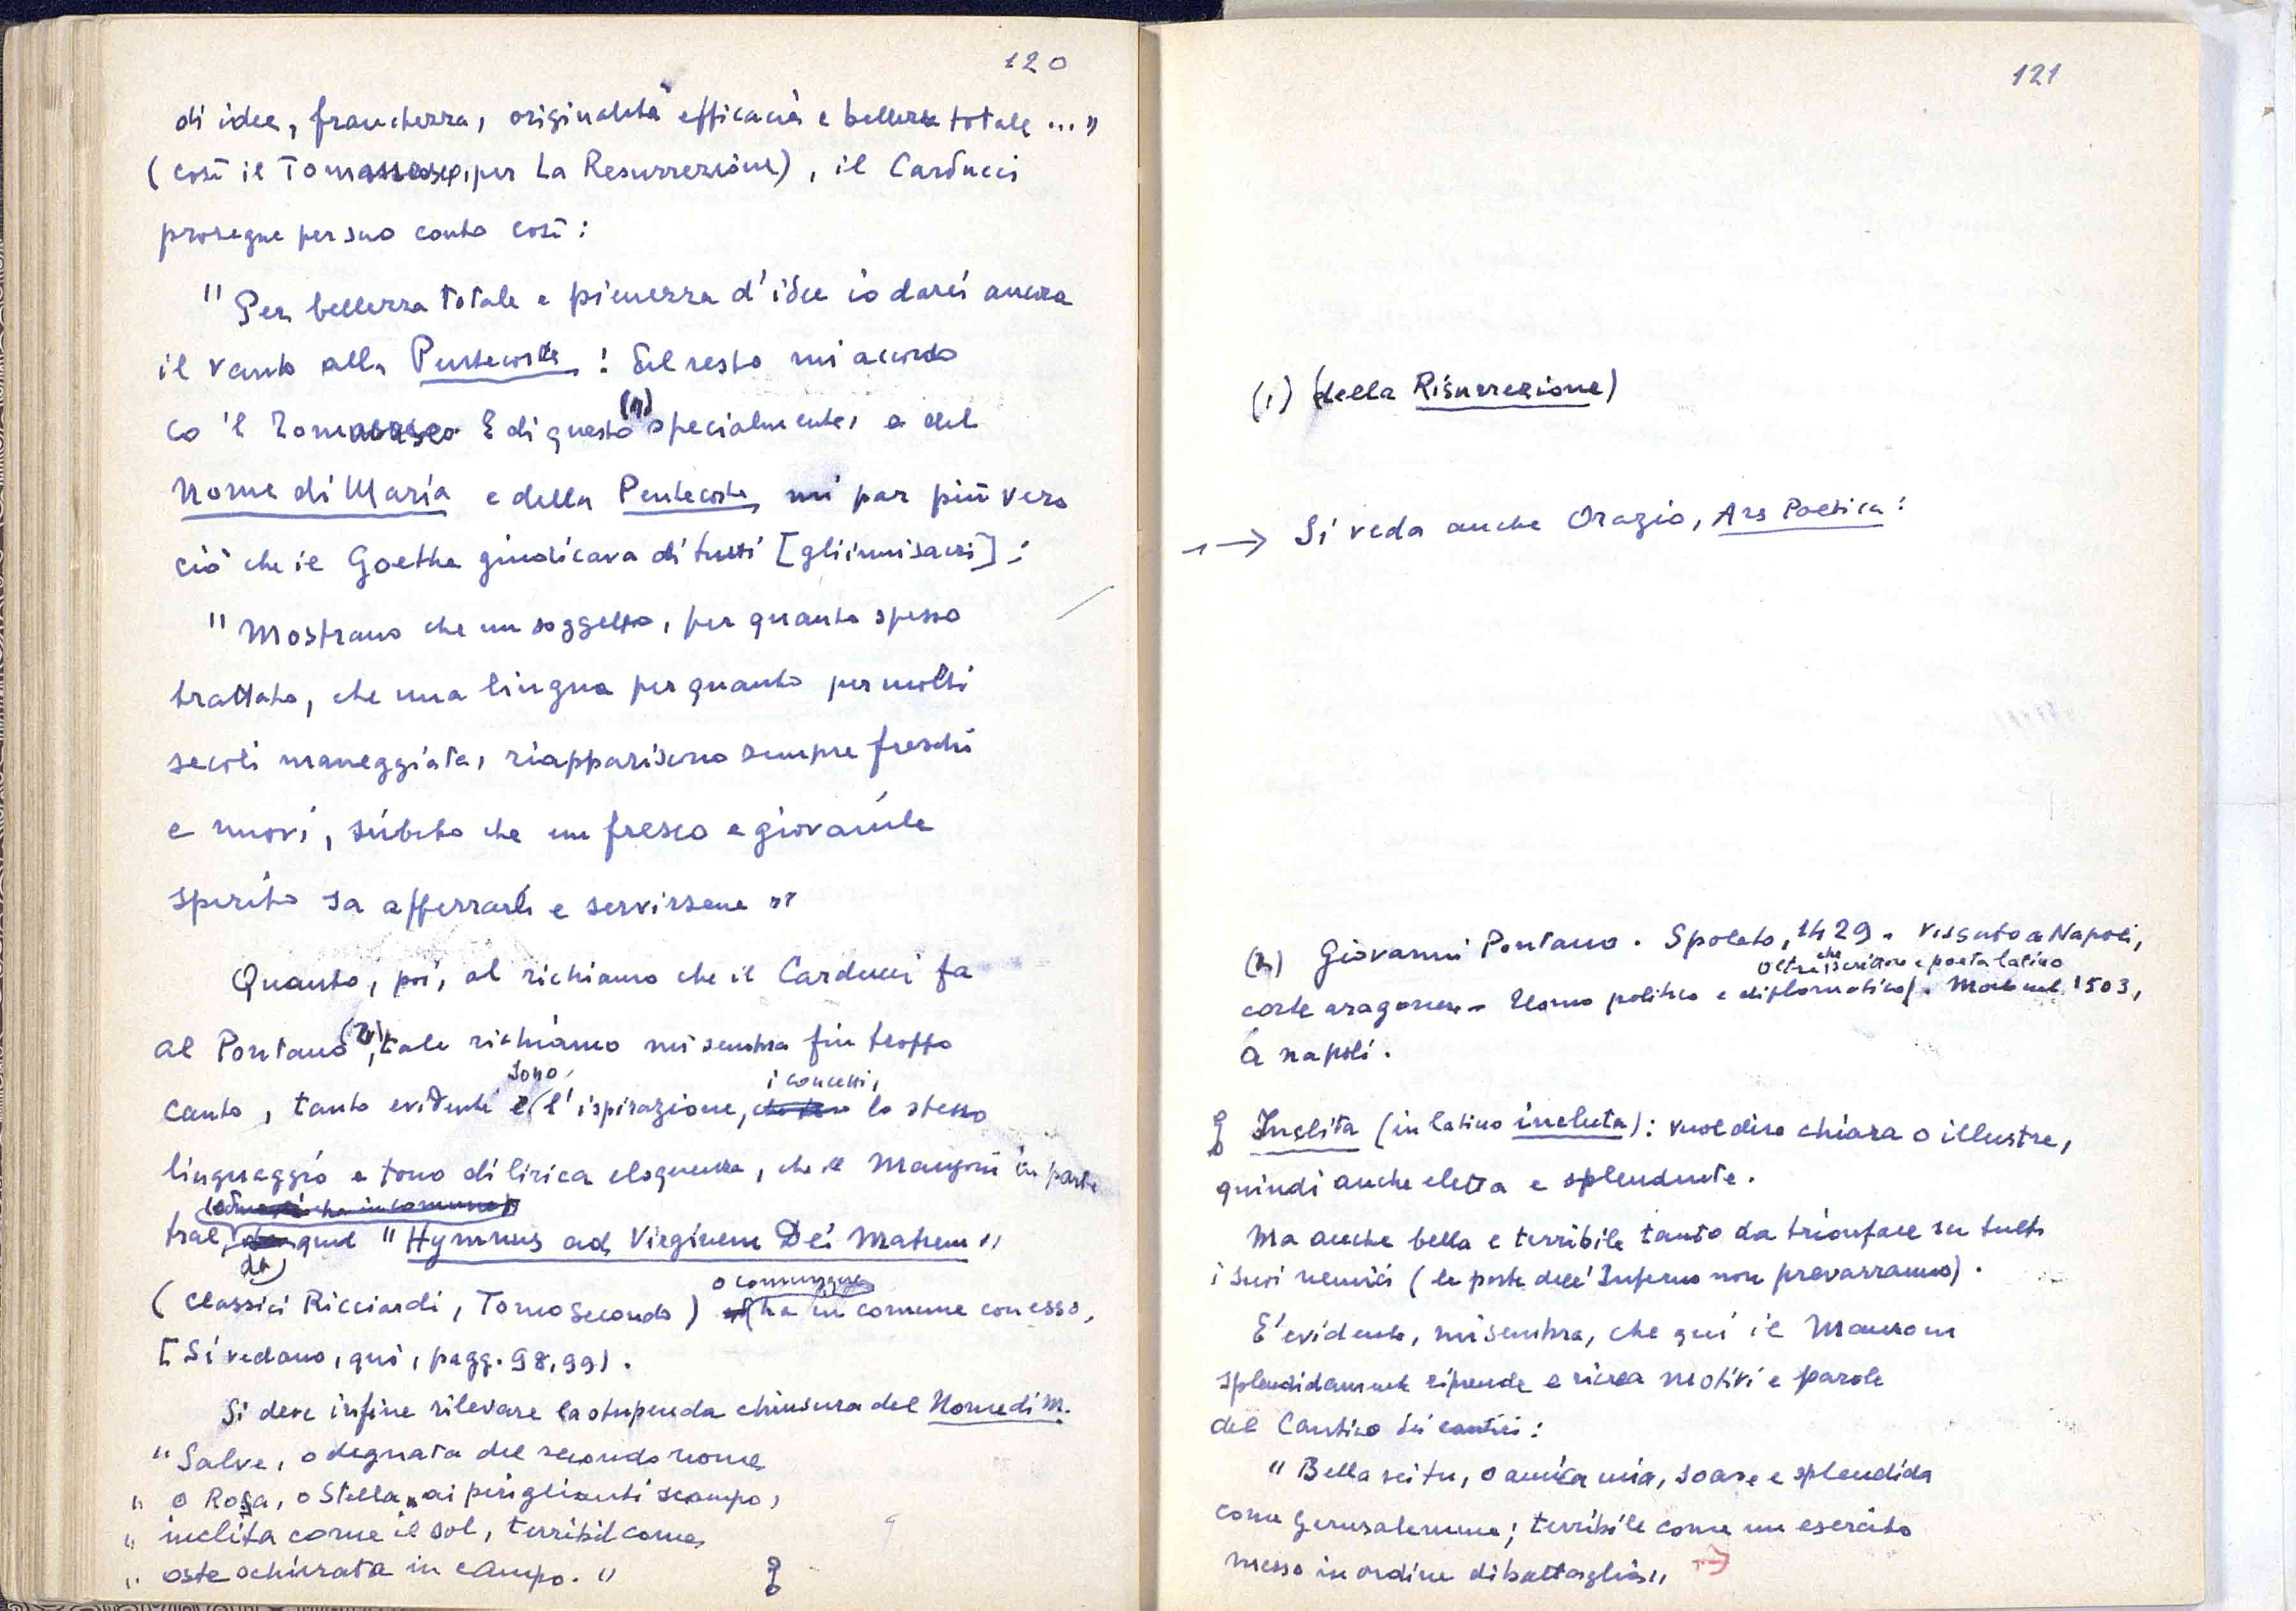 120
di idee, franchezza, originalità efficacia e bellezza totale ..."
(così il Tommaseo, per La Resurrezione), il Carducci
prosegue per suo conto così:
"Per bellezza totale e pienezza d'idee io darei ancora
il vanto alla Pentecoste! Del resto mi accordo
co 'l Tommaseo E di questo (1) specialmente, e del
Nome di Maria e della Pentecoste, mi par più vero
ciò che il Goethe giudicava di tutti [gli inni sacri]:
"Mostrano che un soggetto, per quanto spesso
trattato, che una lingua per quanto per molti
secoli maneggiata, riappariscono sempre freschi
e nuovi, sùbito che un fresco e giovanile
spirito sa afferrarli e servirsene "
Quanto, poi, al richiamo che il Carducci fa
al Pontano (2), tale richiamo mi sembra fin troppo
sono i concetti,
cauto, tanto evidenti è l'ispirazione, lo stesso
linguaggio e tono di lirica eloquenza, che il Manzoni in parte
che ha in comune
trae da quel "Hymnus ad Virginem Dei Matrem"
o comunque
(Classici Ricciardi, Tomo Secondo) ha in comune con esso,
[Si vedano, qui, pagg. 98, 99).
Si deve infine rilevare la stupenda chiusura del Nome di M.
"Salve, o degnata del secondo nome
" o Rosa, o Stella ai periglianti scampo,
" inclita come il sol, terribil come
" oste schierata in campo."
121
(1) (della Risurrezione)
→ Si veda anche Orazio, Ars Poetica:
(2) Giovanni Pontano. Spoleto, 1429. Vissuto a Napoli,
oltre che scrittore e poeta latino
corte aragonese - Uomo politico e diplomatico. Morto nel 1503,
a Napoli.
Inclita (in latino incluta): vuol dire chiara o illustre,
quindi anche eletta e splendente.
Ma anche bella e terribile tanto da trionfare su tutti
i suoi nemici (le porte dell'Inferno non prevarranno).
E' evidente, mi sembra, che qui il Manzoni
splendidamente riprende e ricrea motivi e parole
del Cantico dei cantici:
"Bella sei tu, o amica mia, soave e splendida
come Gerusalemme; terribile come un esercito
messo in ordine di battaglia" →